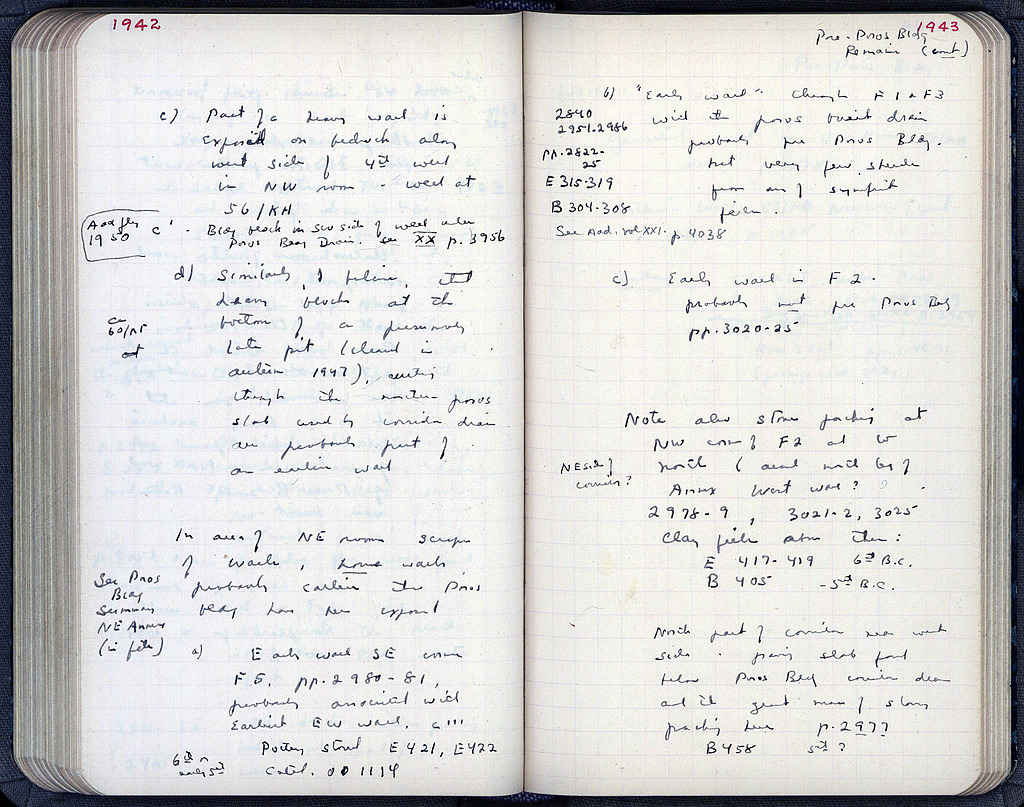 1942
c) Part of a heavy wall is
exposed on bedrock along
west side of 4th well
in NW room - well at
56/ΚΗ
Aod fly
1950
c' - Bldg block in SW side of well under
Poros Bldg Drain. see XX p. 3956
d) Similarly, I believe, that
heavy blocks at the
ca
60/
at
bottom of a presumably
late pit (cleared in
autumn 1947), cutting
through the northern poros
slab used by corridor drain
are probably part of
an earlier wall
In area of NE room scraps
of walls, some walls
See Poros
Bldg
Summary
NE Annex
(in file)
probably earlier than Poros
bldg have been exposed
a) Early wall SE corner
F 5, pp. 2980-81,
probably associated with
Earliest EW wall,
Pottery strat E 421, E 422
6th or
early 5th
Catal. 00 1114
1943
Pre-Poros Bldg
Remains (cont)
b) "Early wall" through F1 & F3
2840
2951-2986
with the poros built drain
probably pre Poros Bldg.
pp. 2822-
25
but very few sherds
E 315-319
from any significant
B 304-308
fill.
See Aod. vol XXI. p. 4038
c) Early wall in F 2.
probably not pre Poros Bldg
pp. 3020-25
Note also stone packing at
NW corner of F2 and to
NE side of
corridor?
north (and north leg of
Annex West wall?
2978-9, 3021-2, 3025
Clay fill above this:
E 417-419 6th B.C.
B 405 - 5th B.C.
North part of corridor near west
side. paving slab found
below Poros Bldg corridor drain
and the great mass of stone
packing here p. 297?
B 458 5th ?